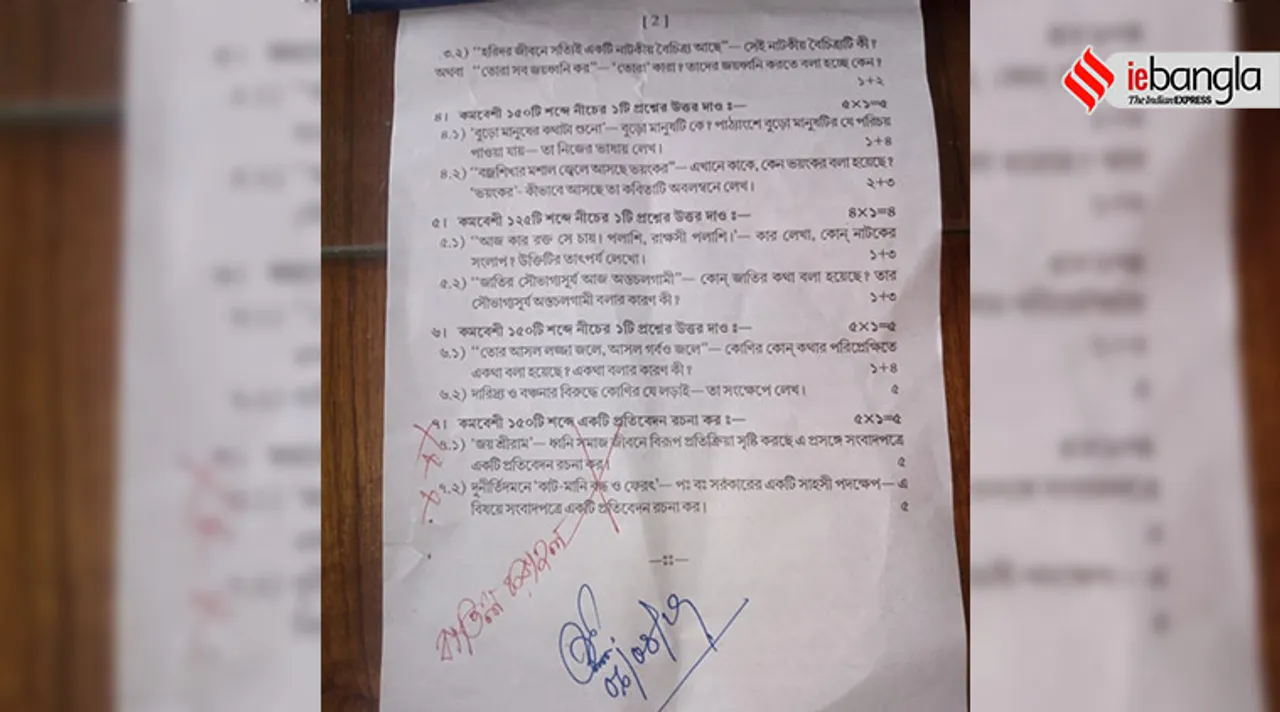 [ 2 ]
৩.২) “হরিদর জীবনে সত্যিই একটি নাটকীয় বৈচিত্র্য আছে”— সেই নাটকীয় বৈচিত্র্যটি কী ?
অথবা “তোরা সব জয়ধ্বনি কর”— ‘তোরা’ কারা ? তাদের জয়ধ্বনি করতে বলা হচ্ছে কেন ?
১+২
৪। কমবেশী ১৫০টি শব্দে নীচের ১টি প্রশ্নের উত্তর দাও ঃ— ৫×১=৫
৪.১) ‘বুড়ো মানুষের কথাটা শুনো’— বুড়ো মানুষটি কে ? পাঠ্যাংশে বুড়ো মানুষটির যে পরিচয়
পাওয়া যায়— তা নিজের ভাষায় লেখ। ১+৪
৪.২) “বজ্রশিখার মশাল জ্বেলে আসছে ভয়ংকর”— এখানে কাকে, কেন ভয়ংকর বলা হয়েছে ?
‘ভয়ংকর’- কীভাবে আসছে তা কবিতাটি অবলম্বনে লেখ। ২+৩
৫। কমবেশী ১২৫টি শব্দে নীচের ১টি প্রশ্নের উত্তর দাও ঃ— ৪×১=৪
৫.১) “আজ কার রক্ত সে চায়। পলাশি, রাক্ষসী পলাশি।’— কার লেখা, কোন্ নাটকের
সংলাপ ? উক্তিটির তাৎপর্য লেখো। ১+৩
৫.২) “জাতির সৌভাগ্যসূর্য আজ অস্তচলগামী”— কোন্ জাতির কথা বলা হয়েছে ? তার
সৌভাগ্যসূর্য অস্তচলগামী বলার কারণ কী ? ১+৩
৬। কমবেশী ১৫০টি শব্দে নীচের ১টি প্রশ্নের উত্তর দাও ঃ— ৫×১=৫
৬.১) “তোর আসল লজ্জা জলে, আসল গর্বও জলে”— কোণির কোন্ কথার পরিপ্রেক্ষিতে
একথা বলা হয়েছে ? একথা বলার কারণ কী ? ১+৪
৬.২) দারিদ্র্য ও বঞ্চনার বিরুদ্ধে কোণির যে লড়াই— তা সংক্ষেপে লেখ। ৫
৭। কমবেশী ১৫০টি শব্দে একটি প্রতিবেদন রচনা কর ঃ— ৫×১=৫
৭.১) ‘জয় শ্রীরাম’— ধ্বনি সমাজ জীবনে বিরূপ প্রতিক্রিয়া সৃষ্টি করছে এ প্রসঙ্গে সংবাদপত্রে
একটি প্রতিবেদন রচনা কর। ৫
৭.২) দুর্নীতিদমনে ‘কাট-মানি বন্ধ ও ফেরৎ’— পঃ বঃ সরকারের একটি সাহসী পদক্ষেপ— এ
বিষয়ে সংবাদপত্রে একটি প্রতিবেদন রচনা কর। ৫
বাতিল
iebangla
The Indian EXPRESS